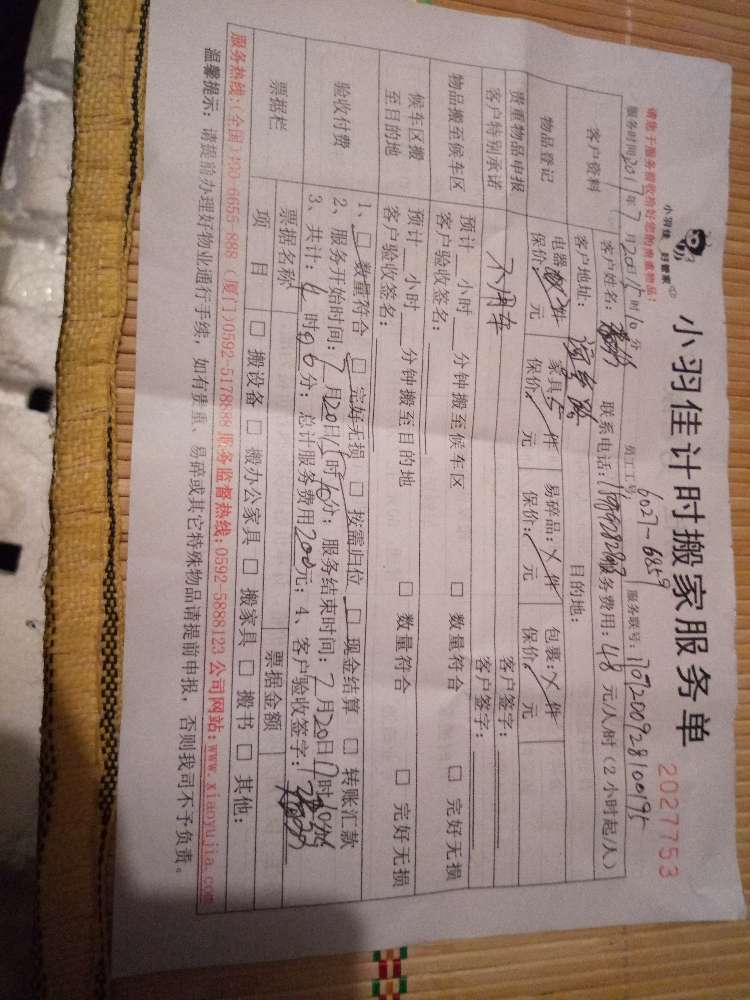 小羽佳 好管家
小羽佳计时搬家服务单
2027753
请您于服务前收拾好您的贵重物品:
服务时间:2017年7月20日15时10分 员工工号:6027-6859 服务联号:
客户资料 客户姓名: 联系电话: 服务费用:48元/人/时(2小时起/人)
客户地址: 目的地:
物品登记 电器 件 家具 件 易碎品:X件 包裹:X件
保价 元 保价 元 保价 元 保价 元
贵重物品申报 客户签字:
客户特别承诺 不用车 客户签字:
物品搬至候车区 预计 小时 分钟搬至候车区 □ 数量符合 □ 完好无损
客户验收签名:
候车区搬至目的地 预计 小时 分钟搬至目的地 □ 数量符合 □ 完好无损
客户验收签名:
验收付费 1、□ 数量符合 □ 完好无损 □ 按需归位 □ 现金结算 □ 转账汇款
2、服务开始时间:7月20日15时10分;服务结束时间:7月20日17时10分
3、共计: 时 分;总计服务费用200元;4、客户验收签字:
票据栏 票据名称 票据金额
项目 □ 搬设备 □ 搬办公家具 □ 搬家具 □ 搬书 □ 其他:
服务热线:(全国)400-6655-888 (厦门)0592-5178888 服务监督热线:0592-5888123 公司网站:www.xiaoyujia.com
温馨提示:请提前办理好物业通行手续,如有贵重、易碎或其它特殊物品请提前申报,否则我司不予负责。